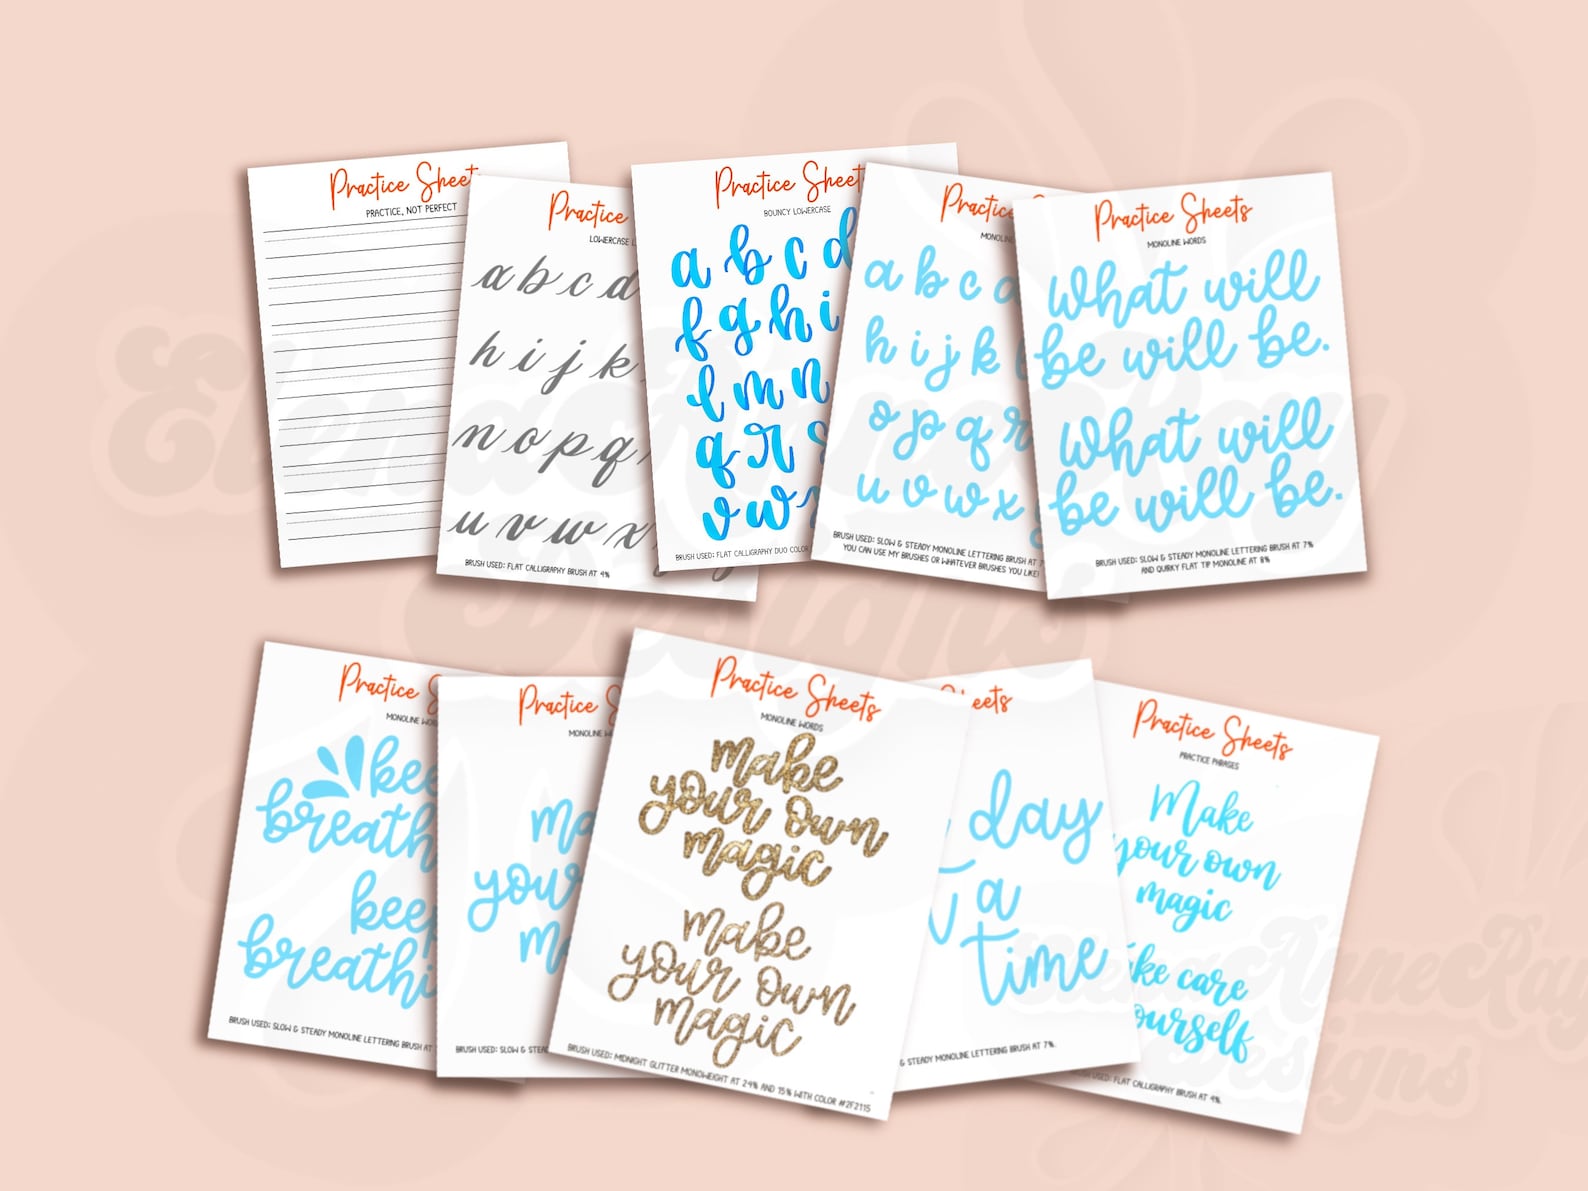 Practice Sheets
PRACTICE, NOT PERFECT
Practice
LOWERCASE
a b c d
h i j k
n o p q
u v w x
BRUSH USED: FLAT CALLIGRAPHY BRUSH AT 4%
Practice Sheets
BOUNCY LOWERCASE
a b c d
f g h i
l m n
q r s
v w
BRUSH USED: FLAT CALLIGRAPHY DUO COLOR
Practice
a b c d
h i j k l
o p q r
u v w x
BRUSH USED: SLOW & STEADY MONOLINE LETTERING BRUSH AT 7
YOU CAN USE MY BRUSHES OR WHATEVER BRUSHES YOU LIKE!
Practice Sheets
MONOLINE WORDS
What will
be will be.
What will
be will be.
BRUSH USED: SLOW & STEADY MONOLINE LETTERING BRUSH AT 7%
AND QUIRKY FLAT TIP MONOLINE AT 8%
Practice S
MONOLINE WO
kee
breath
keep
breathi
BRUSH USED: SLOW & STEADY MONOLINE LETTERING BRUSH AT
Practice
MONOLINE W
ma
your
ma
BRUSH USED: SLOW & STEAD
Practice Sheets
MONOLINE WORDS
make
your own
magic
make
your own
magic
BRUSH USED: MIDNIGHT GLITTER MONOWEIGHT AT 24% AND 15% WITH COLOR #2F2115
Sheets
day
a
time
& STEADY MONOLINE LETTERING BRUSH AT 7%.
Practice Sheets
PRACTICE PHRASES
Make
your own
magic
ake care
ourself
USED: FLAT CALLIGRAPHY BRUSH AT 4%
ElenaAnneRay
Designs
ElenaAnneRay
Designs